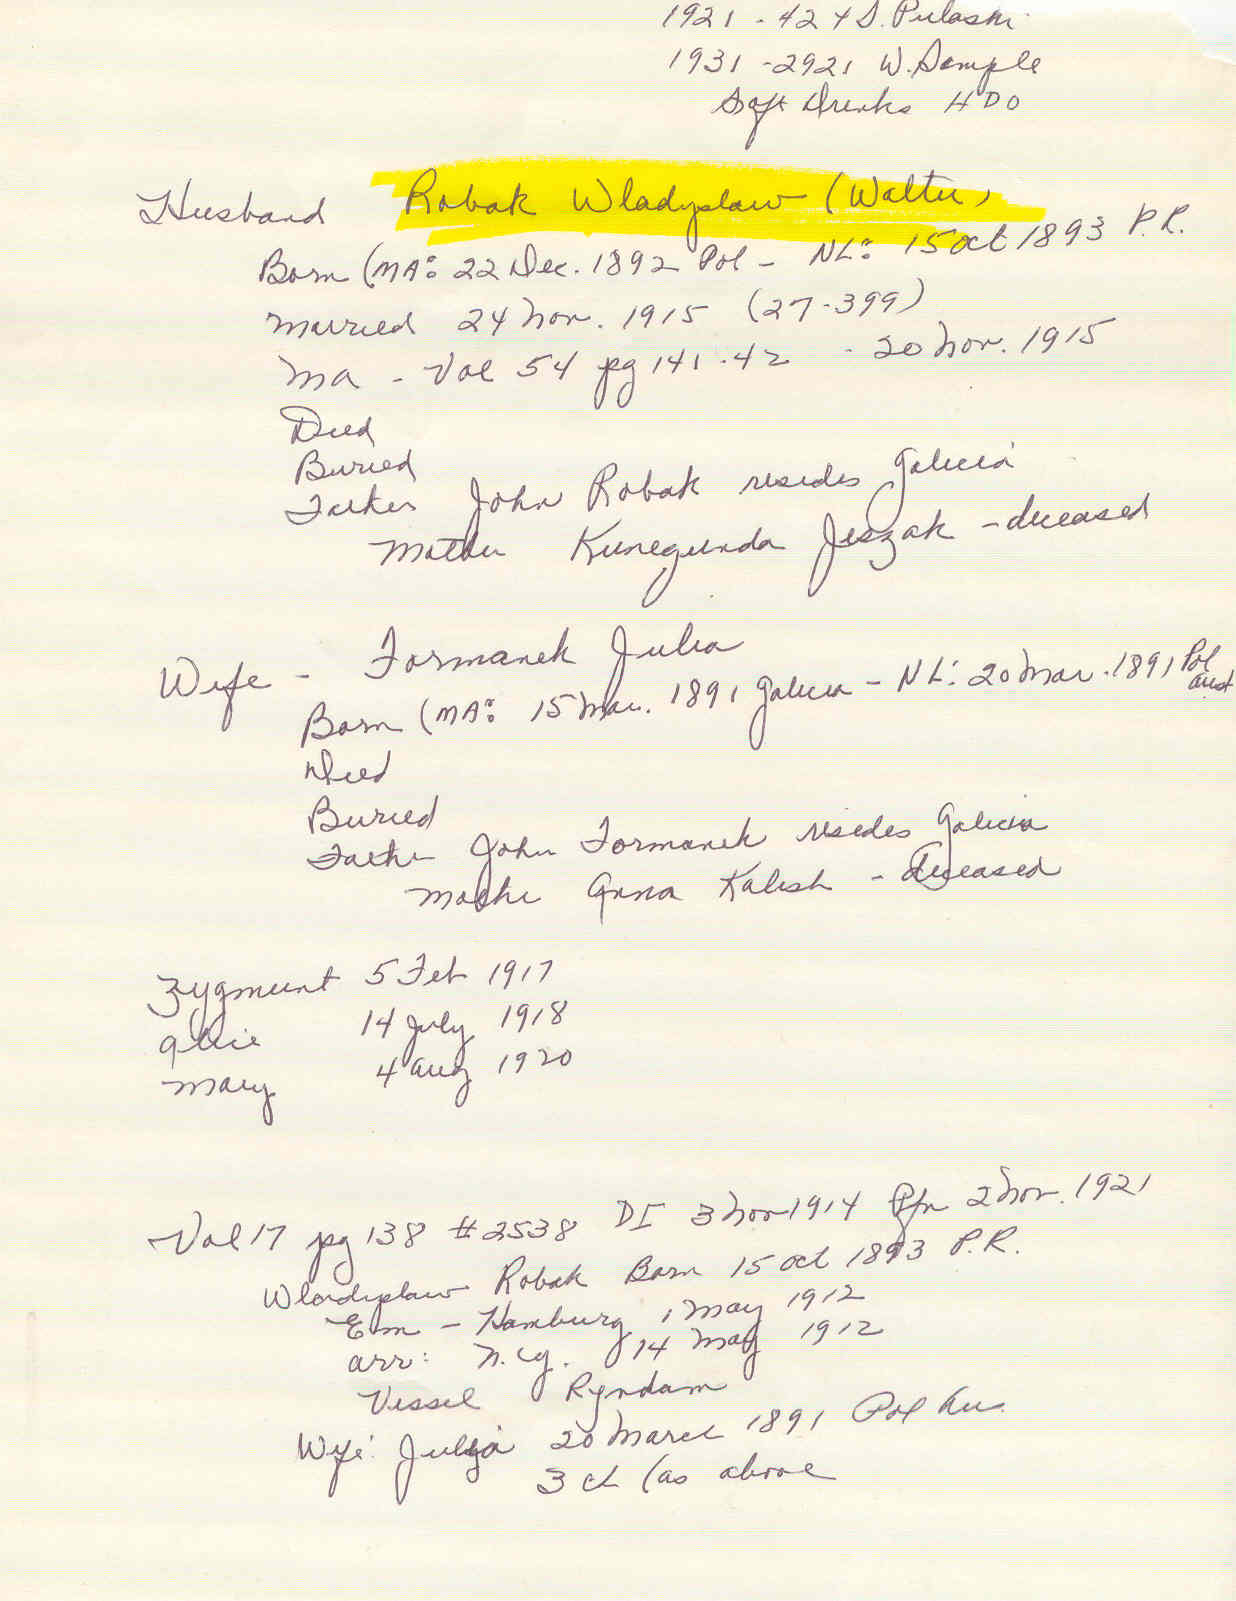 1921 - 424 S. Pulaski
1931 - 2921 W. Sample
Soft Drinks HDO
Husband Robak Wladyslaw (Walter)
Born (MA: 22 Dec. 1892 Pol - NL: 15 Oct 1893 P.R.
Married 24 Nov. 1915 (27-399)
MA - Vol 54 pg 141-42 - 20 Nov. 1915
Died
Buried
Father John Robak resides Galicia
Mother Kunegunda Jeszak - deceased
Wife - Formanek Julia
Born (MA: 15 Mar. 1891 Galicia - NL: 20 Mar. 1891 Pol Aust
Died
Buried
Father John Formanek resides Galicia
Mother Anna Kalish - deceased
Zygmunt 5 Feb 1917
Alice 14 July 1918
Mary 4 Aug 1920
Vol 17 pg 138 #2538 DI 3 Nov 1914 Ptn 2 Nov. 1921
Wladyslaw Robak Born 15 Oct 1893 P.R.
Em - Hamburg 1 May 1912
arr: N.Y. 14 May 1912
Vessel Ryndam
Wife: Julia 20 March 1891 Pol Au.
3 ch (as above